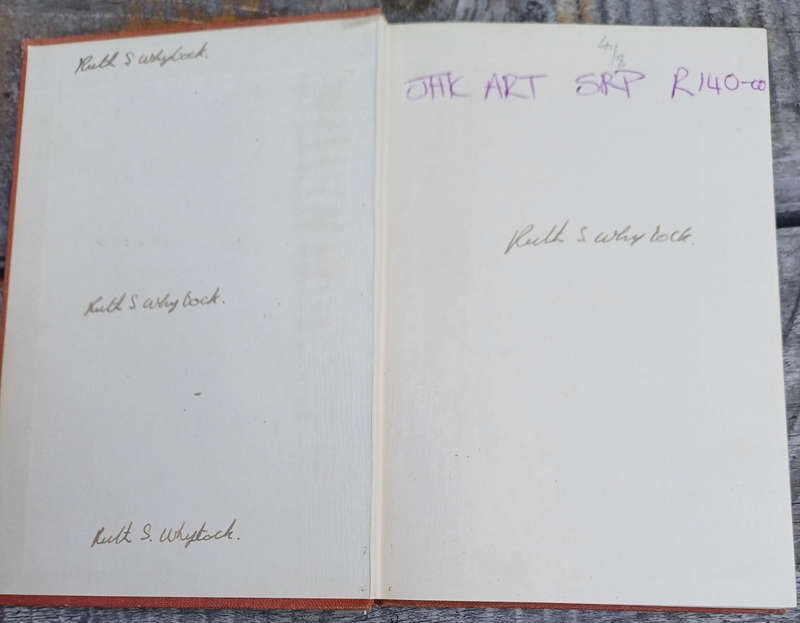 Ruth S Whytock.
Ruth S Whytock.
Ruth S. Whytock.
4/3
JHK ART SRP R140-00
Ruth S Whytock.